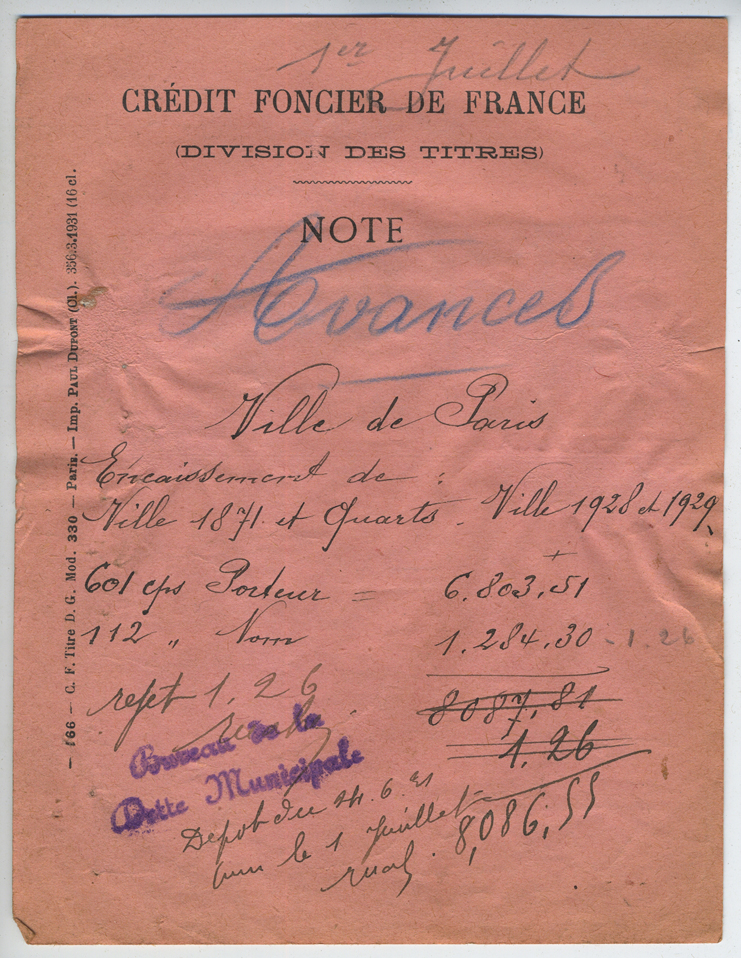 1er Juillet
CRÉDIT FONCIER DE FRANCE
(DIVISION DES TITRES)
NOTE
Avances
Ville de Paris
Encaissement de :
Ville 1871 et Quarts - Ville 1928 et 1929
601 cps Porteur = 6.803,51
112 " Nom 1.284,30 - 1.26
rejet 1,26 8087,81
1,26
Bureau de la
Dette Municipale
Dépôt du 24.6.31
pour le 1 Juillet 8,086,55
- 166 - C. F. Titre D. G. Mod. 330 - Paris. - Imp. PAUL DUPONT (Cl.). 356.3.1931 (16 cl.